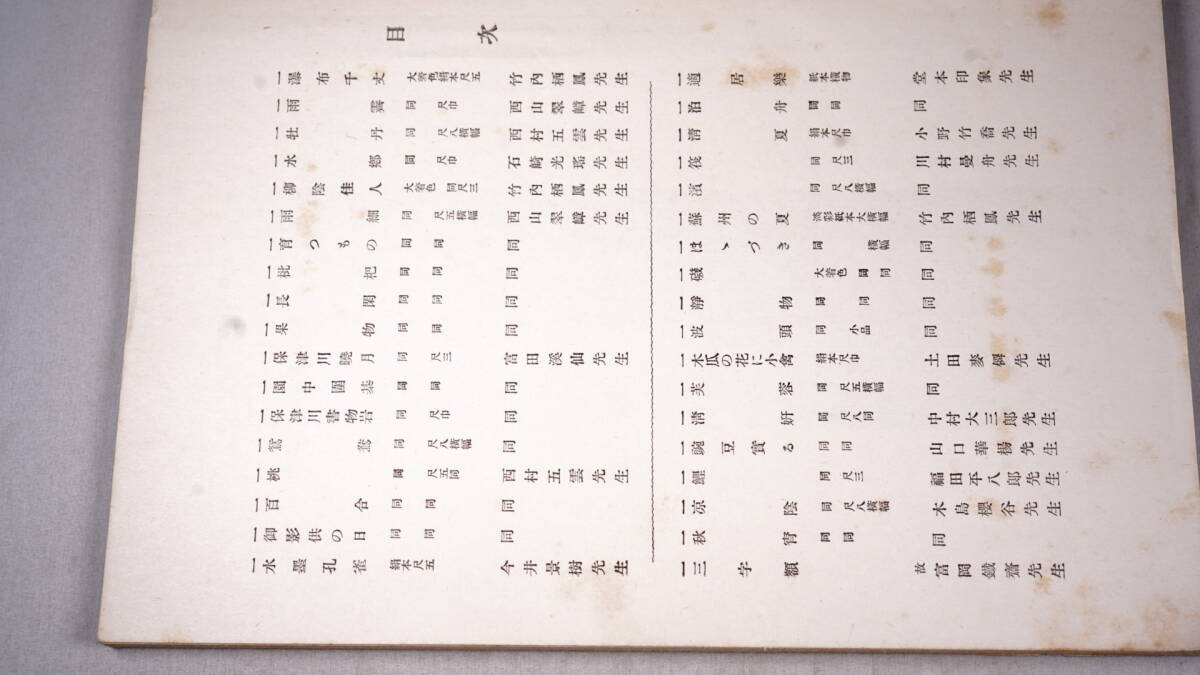 目次
一瀑布千丈 大着色絹本尺五 竹内栖鳳先生
一雨霽 同尺巾 西山翠嶂先生
一牡丹 同尺八横幅 西村五雲先生
一水郷 同尺巾 石崎光瑤先生
一柳陰佳人 大着色同尺三 竹内栖鳳先生
一雨細 同尺五横幅 西山翠嶂先生
一育つもの 同同 同
一枇杷 同同 同
一長閑 同同 同
一果物 同同 同
一保津川曉月 同尺三 富田溪仙先生
一園中圍碁 同同 同
一保津川書物岩 同尺巾 同
一鴛鴦 同尺八横幅 同
一桃 同尺五同 西村五雲先生
一百合 同同 同
一御影供の日 同同 同
一水墨孔雀 絹本尺五 今井景樹先生
一適居樂 紙本横物 堂本印象先生
一泊舟 同同 同
一清夏 絹本尺巾 小野竹喬先生
一筏 同尺三 川村曼舟先生
一濱 同尺八横幅 同
一蘇州の夏 淡彩紙本大横幅 竹内栖鳳先生
一ほゝづき 同横幅 同
一磯 大着色同同 同
一靜物 同同 同
一波頭 同小品 同
一木瓜の花に小禽 絹本尺巾 土田麥僊先生
一芙蓉 同尺五横幅 同
一清妍 同尺八同 中村大三郎先生
一豌豆實る 同同 山口華楊先生
一鯉 同尺三 福田平八郎先生
一凉陰 同尺八横幅 木島櫻谷先生
一秋宵 同同 同
一三字額 故富岡鐵齋先生